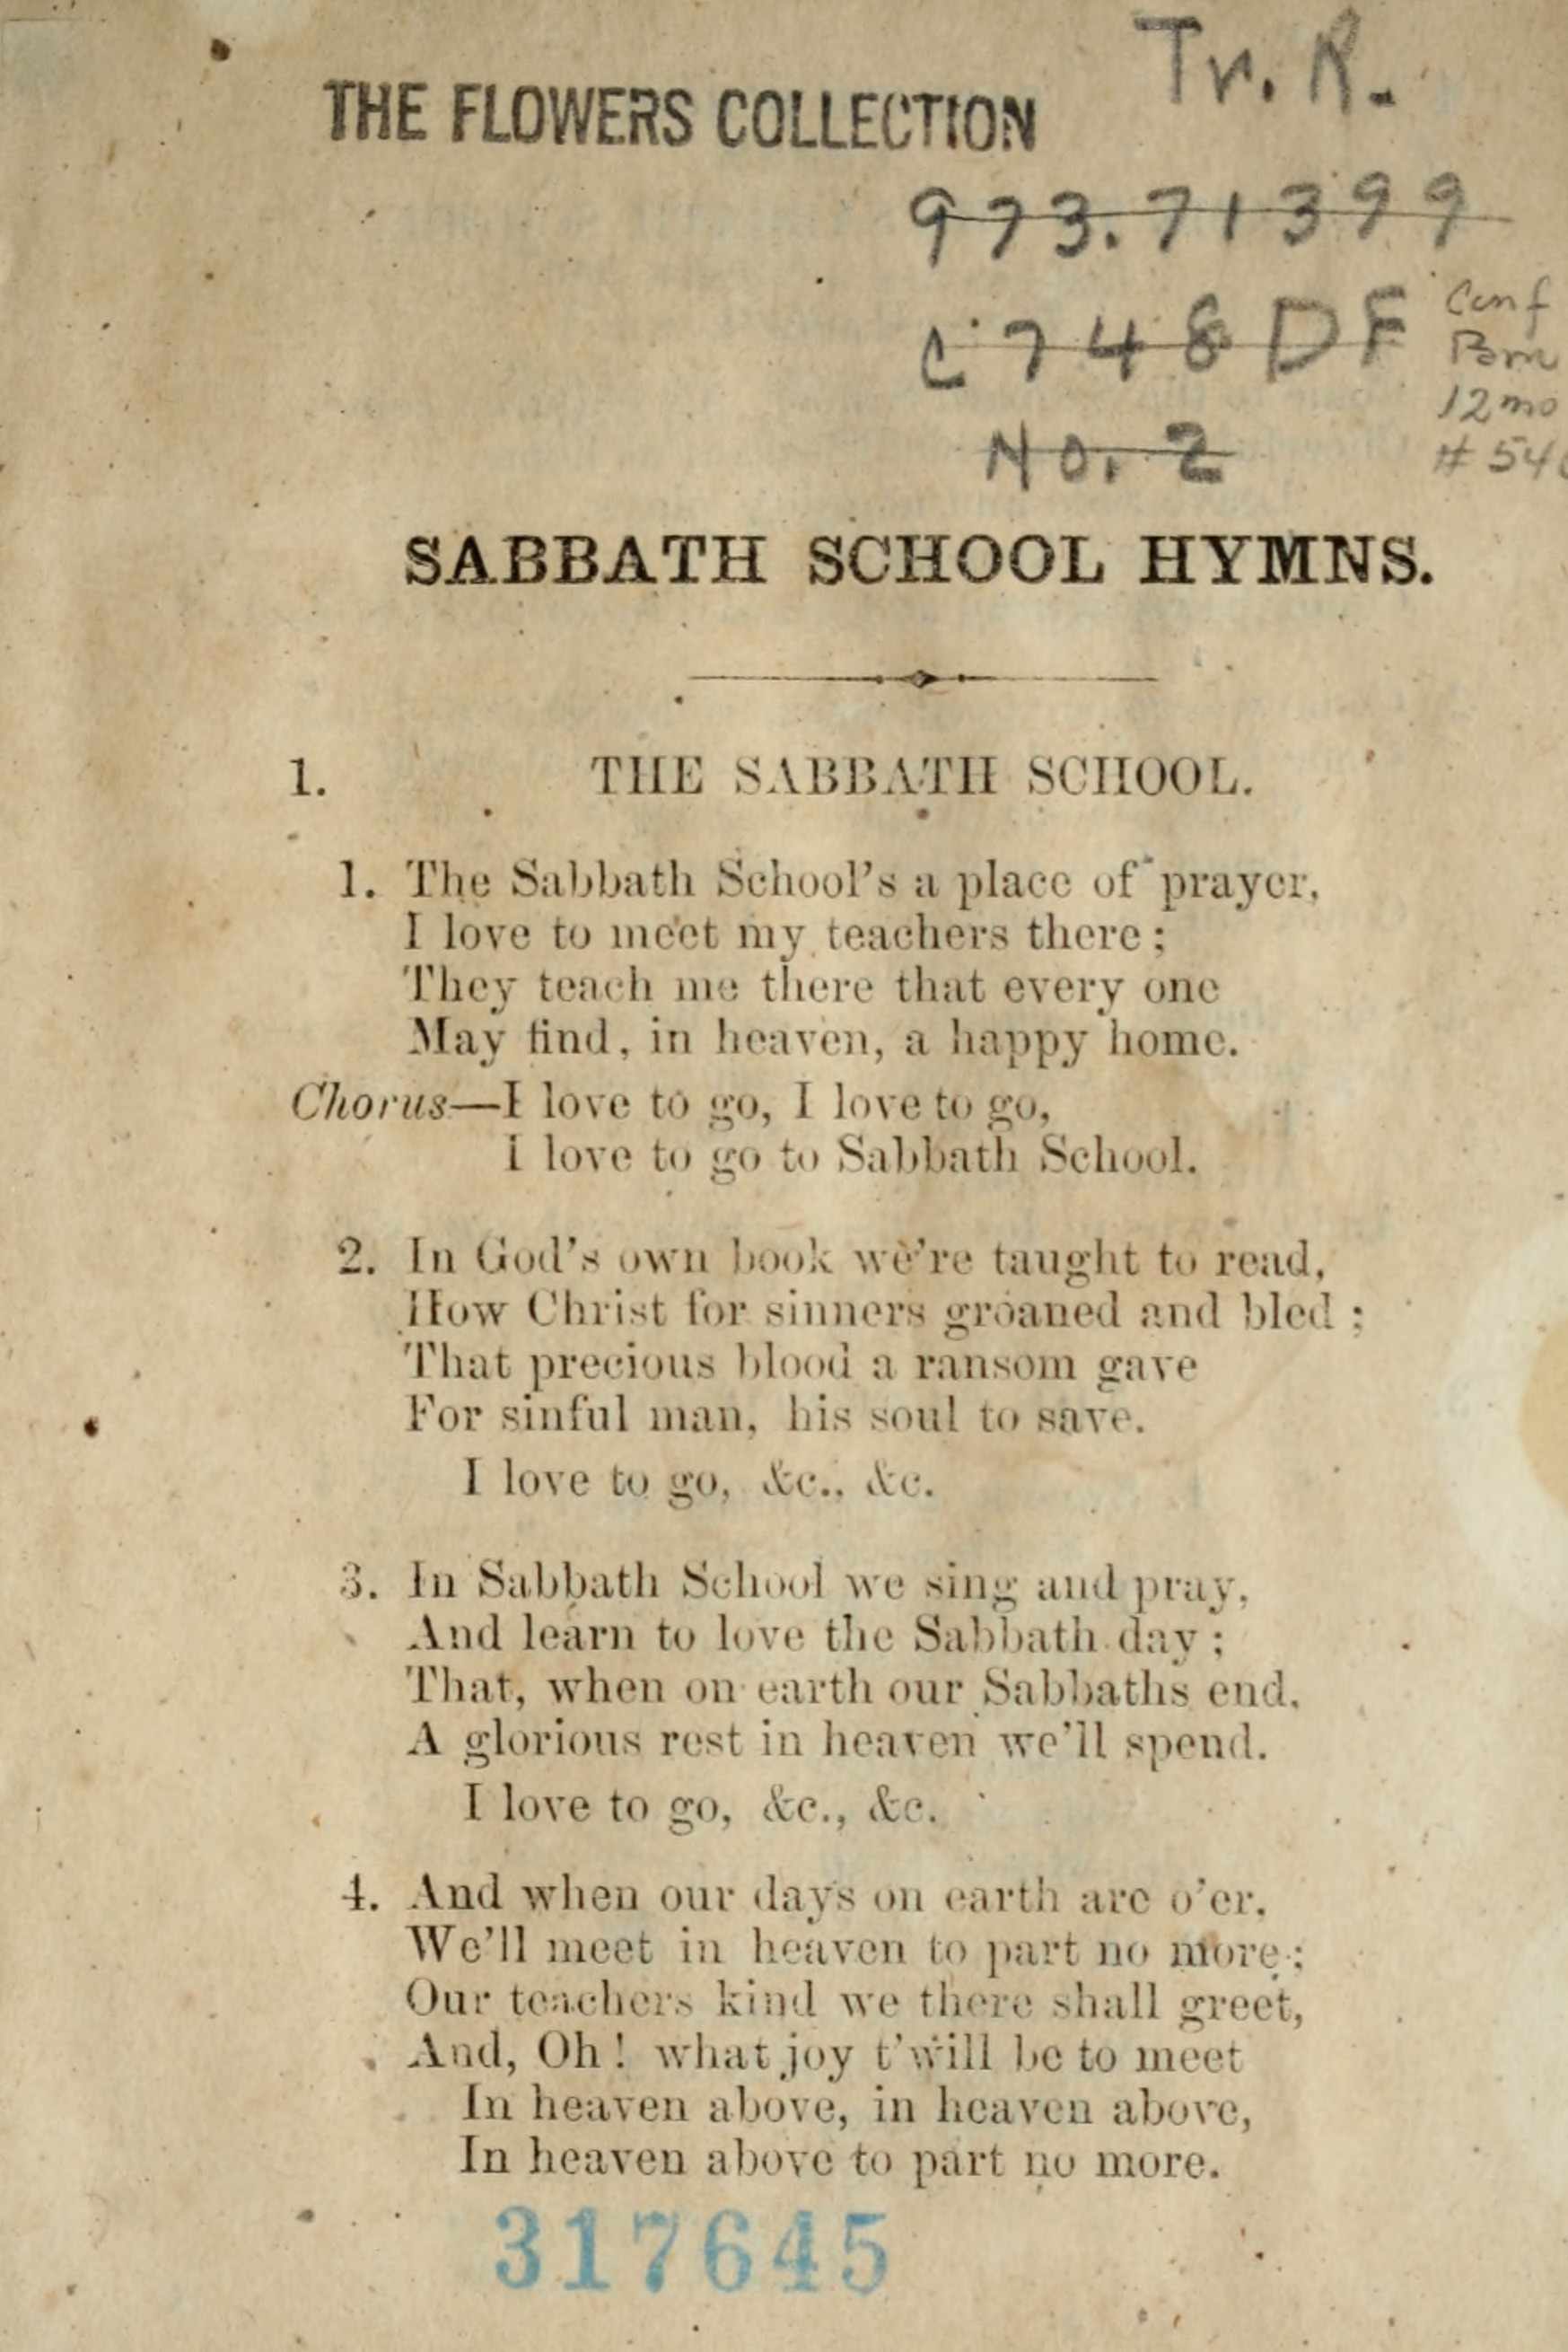 THE FLOWERS COLLECTION
Tr. R.
973.71399
C748DF
No. 2
Conf
Pam
12mo
#54
SABBATH SCHOOL HYMNS.
1. THE SABBATH SCHOOL.
1. The Sabbath School's a place of prayer,
I love to meet my teachers there;
They teach me there that every one
May find, in heaven, a happy home.
Chorus—I love to go, I love to go,
I love to go to Sabbath School.
2. In God's own book we're taught to read,
How Christ for sinners groaned and bled;
That precious blood a ransom gave
For sinful man, his soul to save.
I love to go, &c., &c.
3. In Sabbath School we sing and pray,
And learn to love the Sabbath day;
That, when on earth our Sabbaths end,
A glorious rest in heaven we'll spend.
I love to go, &c., &c.
4. And when our days on earth are o'er,
We'll meet in heaven to part no more;
Our teachers kind we there shall greet,
And, Oh! what joy t'will be to meet
In heaven above, in heaven above,
In heaven above to part no more.
317645